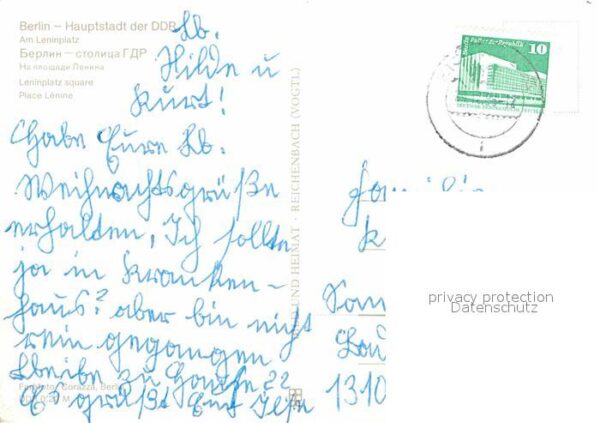 Berlin – Hauptstadt der DDR
Am Leninplatz
Берлин – столица ГДР
На площади Ленина
Leninplatz square
Place Lénine
Lb.
Hilde u
Kurt!
Habe Eure Lb.
Weihnachtsgrüße
erhalten, Ich sollte
ja in Kranken-
haus? aber bin nicht
rein gegangen
bleibe zu Hause
Es grüßt Euch Ilse
BILD UND HEIMAT · REICHENBACH (VOGTL)
Berlin Palast der Republik
10
DDR
Familie
K
1310
privacy protection
Datenschutz